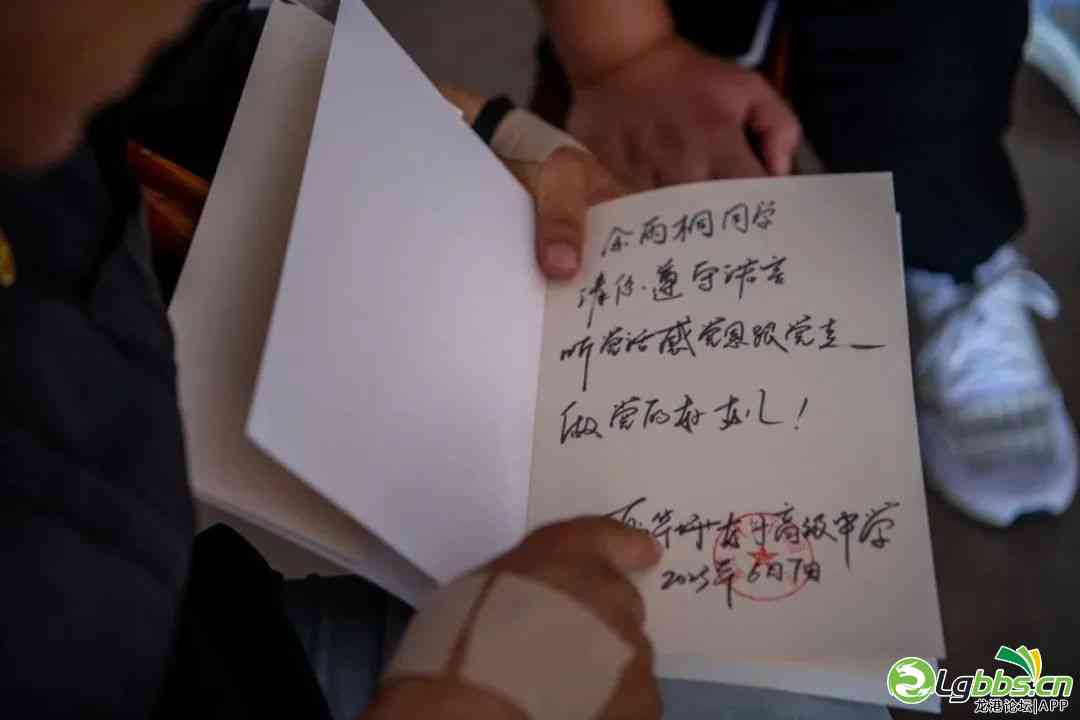 余雨桐同学
请你遵守诺言
听党话感党恩跟党走
做党的好女儿！
华坪女子高级中学
2025年6月7日
Lgbbs.cn
龙港论坛|APP